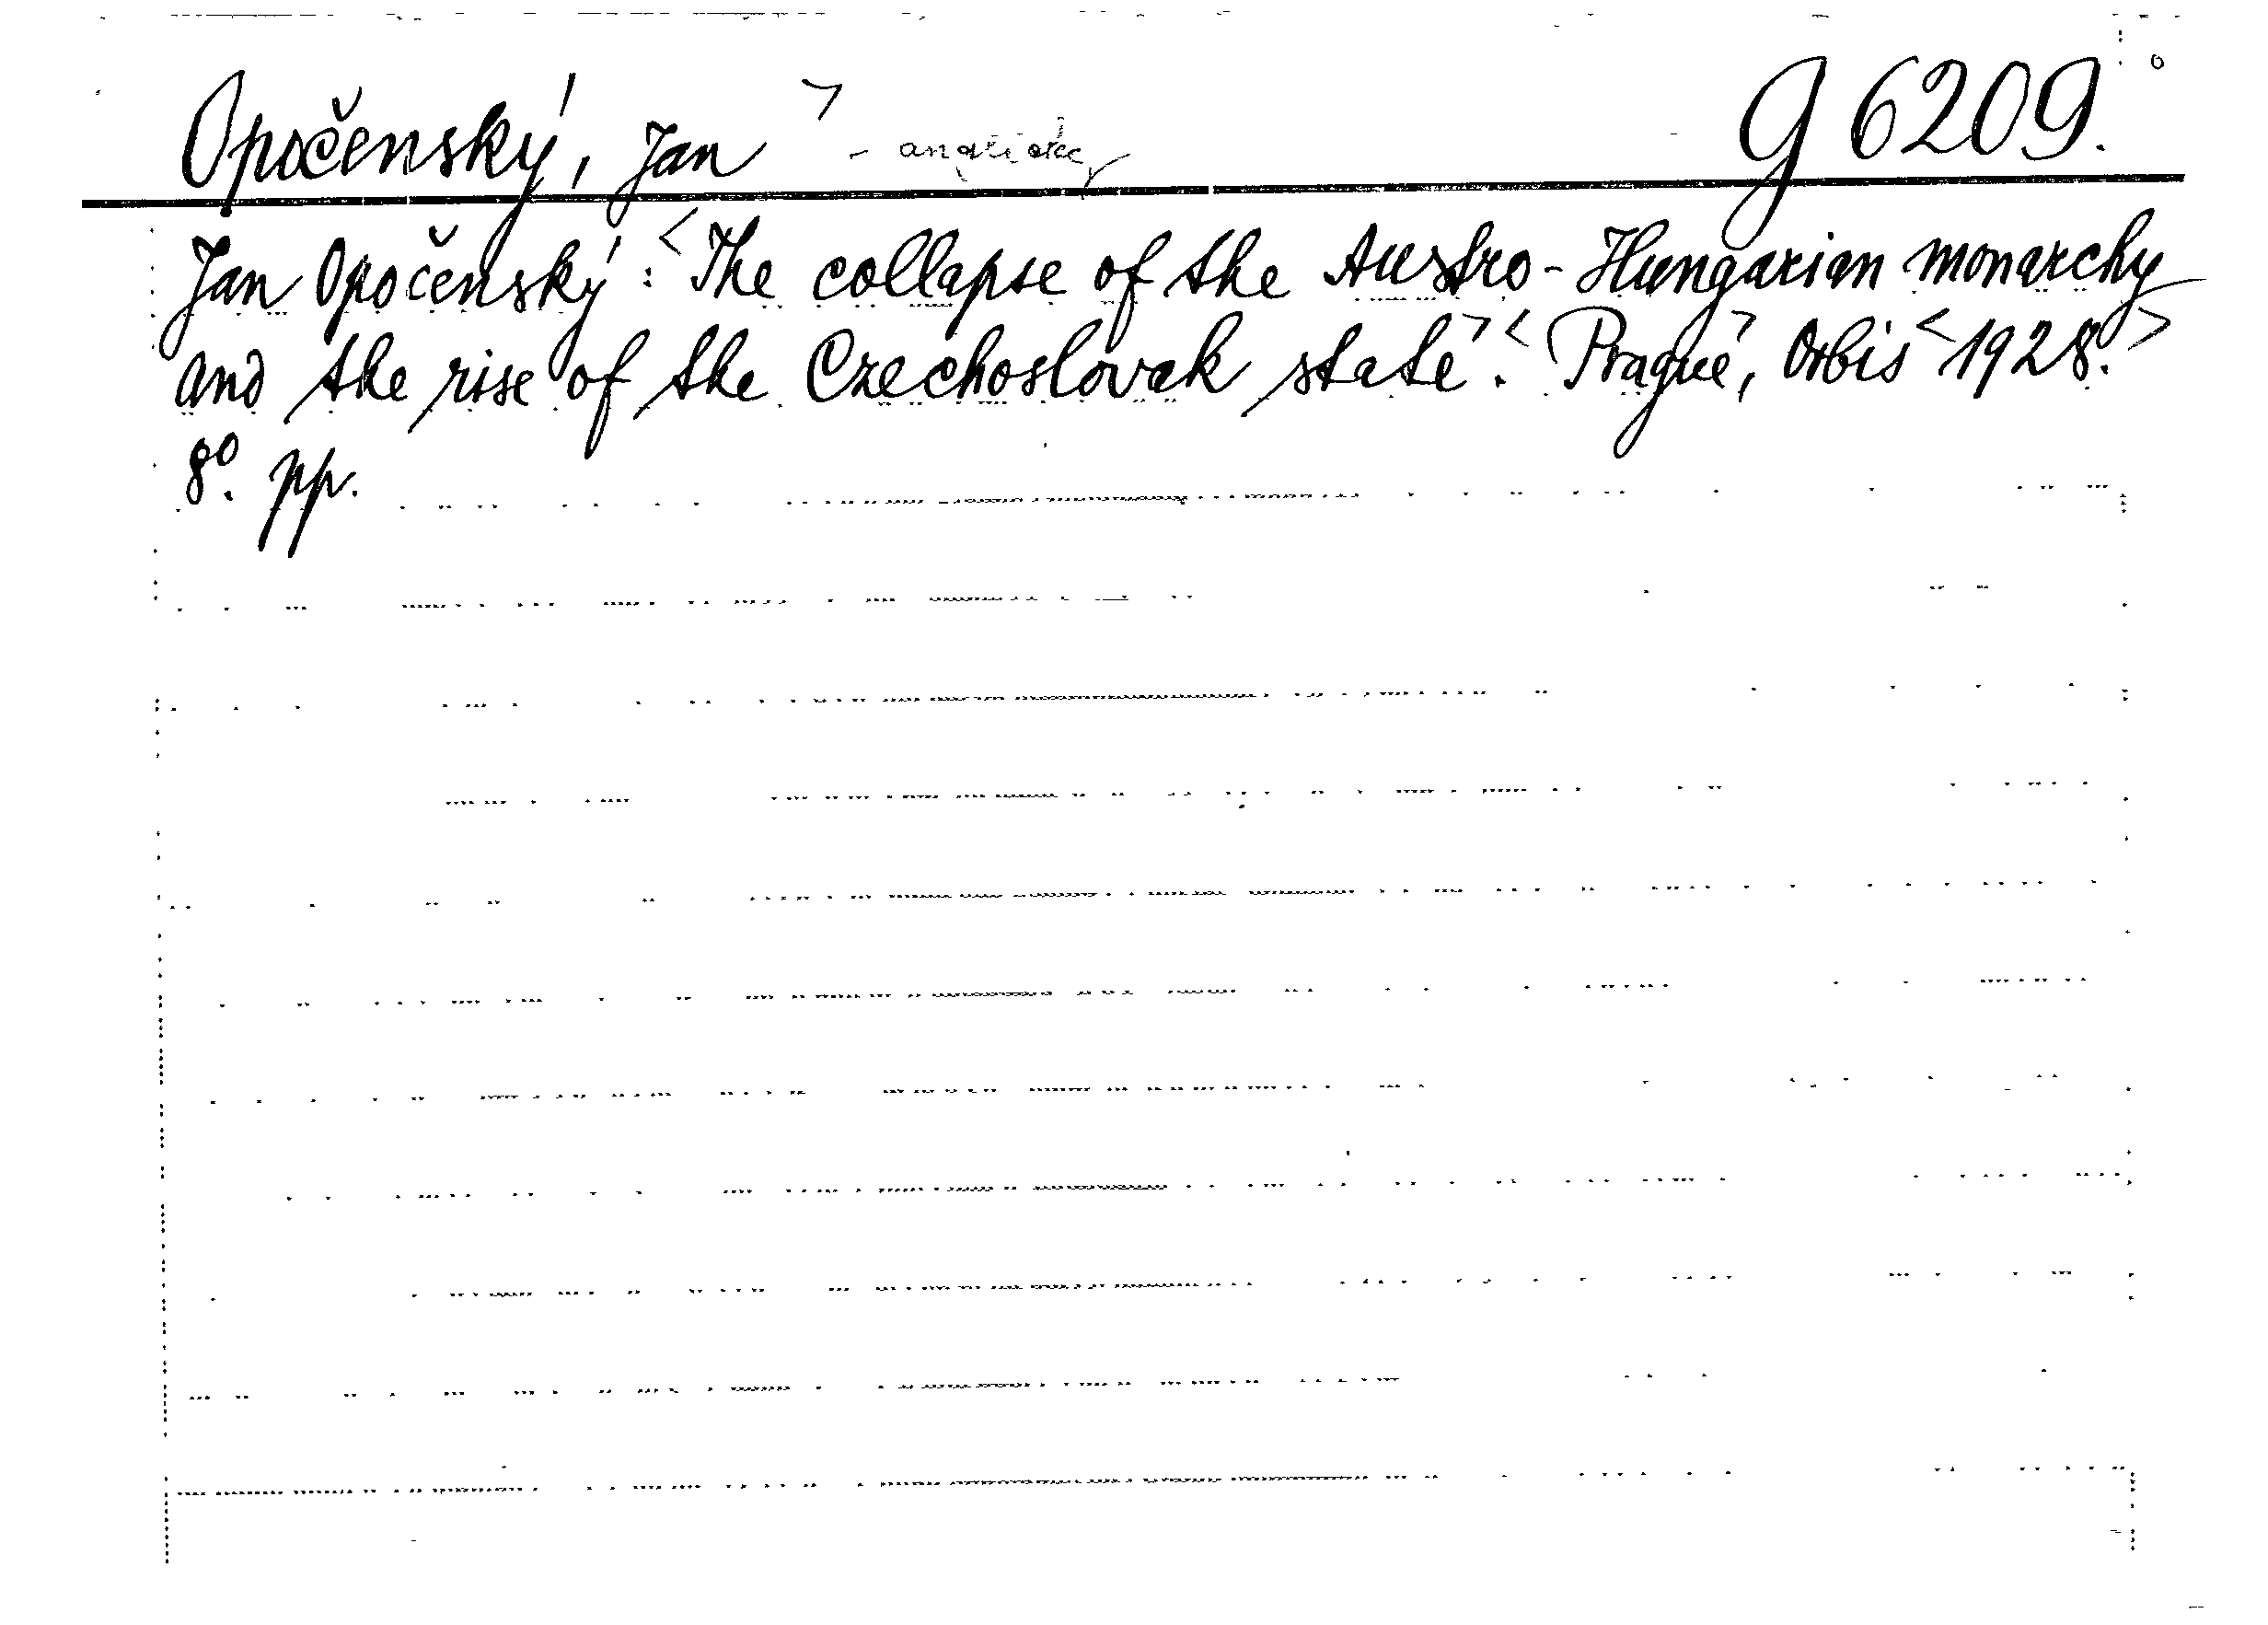 Opočenský, Jan > - anglicky G 6209.
Jan Opočenský: <The collapse of the Austro-Hungarian monarchy
and the rise of the Czechoslovak state>. <Prague>, Orbis <1928.>
8°. pp.